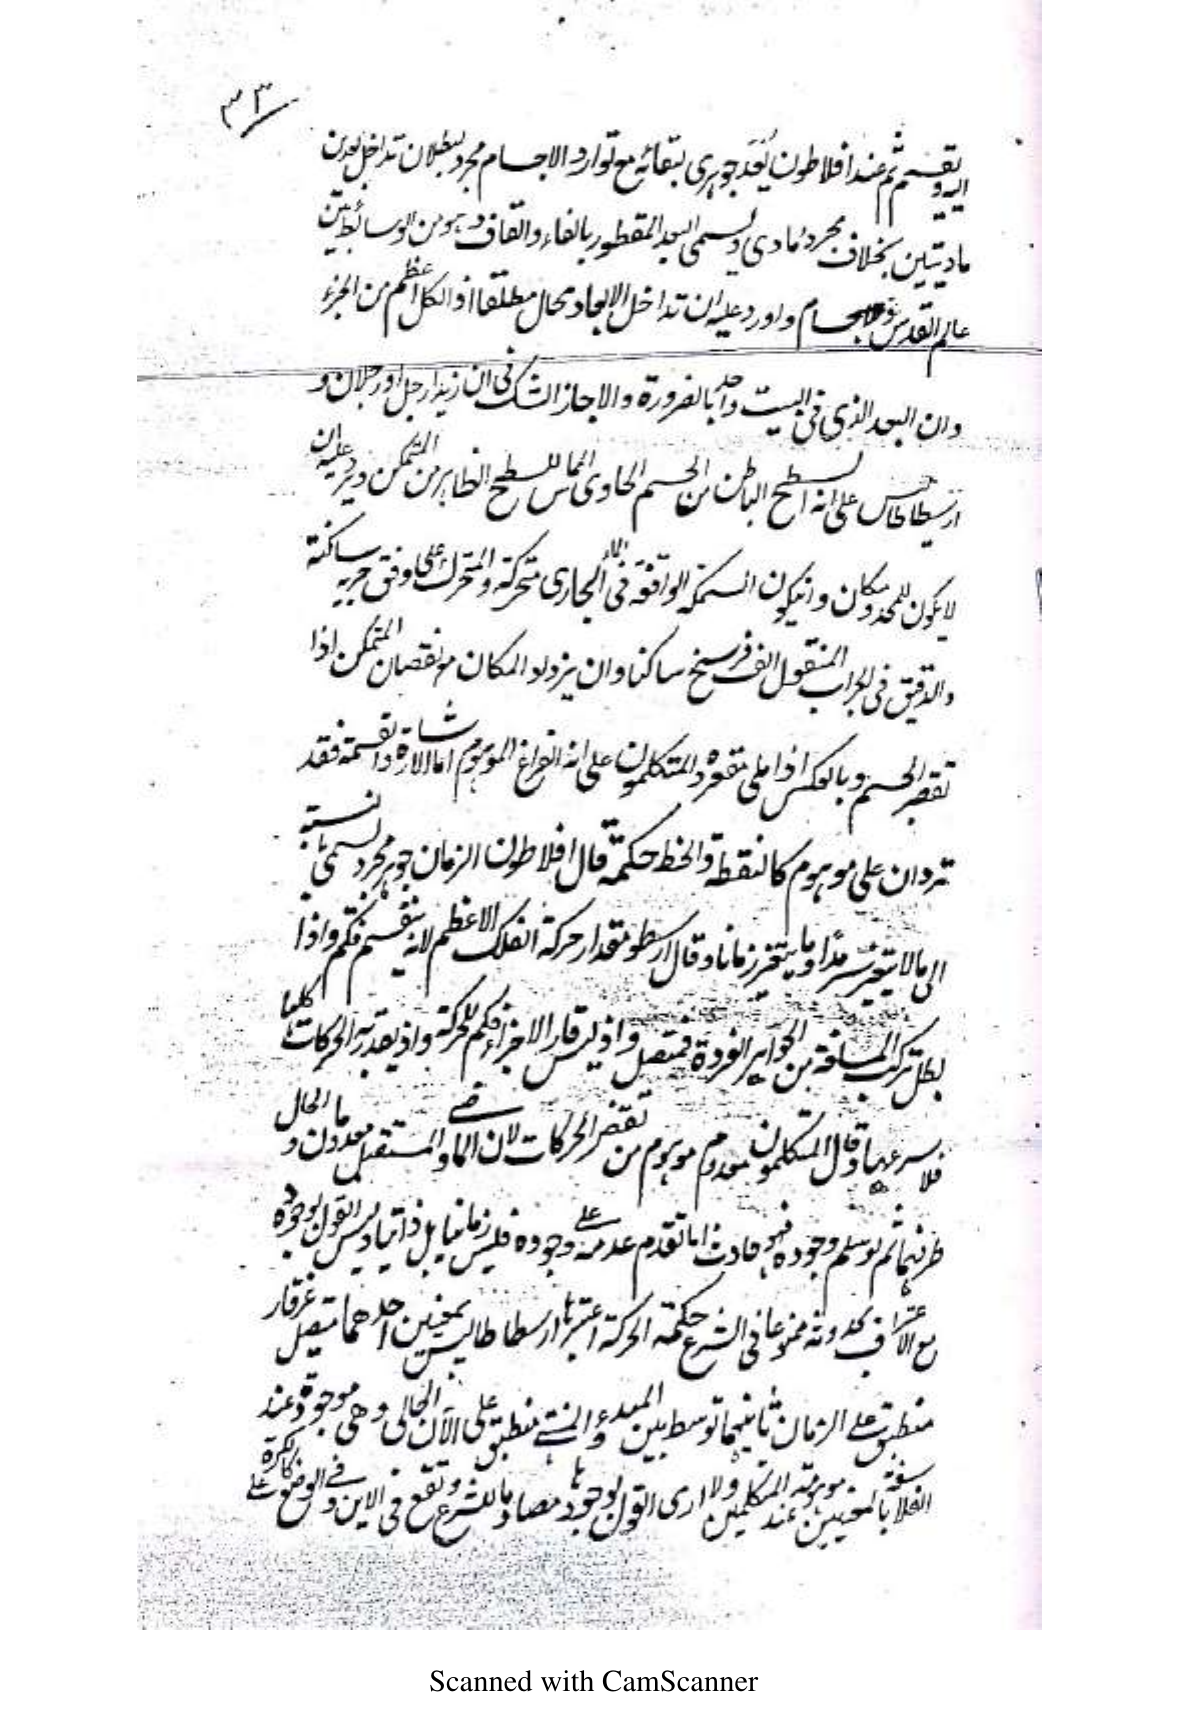 ٣٣
اليه ويقسم ثم عند افلاطون بُعد جوهرى لبقائه مع توارد الاجسام مجرد لبطلان تداخل بعدين
ماديتين بخلاف مجرد ومادي ويسمى البعد المقطور بالفاء والقاف وهو من الوسائط بين
عالم القدس والاجسام واورد عليه ان تداخل الابعاد محال مطلقا اذ الكل اعظم من الجزء
وان البعد الذي في البيت واحد بالضرورة والا جاز الشك في ان زيدا رجل او رجلان و
ارسطاطاليس على انه السطح الباطن من الجسم الحاوى المماس للسطح الظاهر من المتمكن ويرد عليه ان
لا يكون للمحدد مكان وان يكون السمكة الواقفة في الماء الجارى متحركة والمتحرك على وفق جريه ساكنة
والدقيق في الجراب المنقول الف فرسخ ساكنا وان يزداد المكان مع نقصان المتمكن اذا
نقص الجسم وبالعكس اذا ملى مقعره والمتكلمون على انه الفراغ الموهوم اما الاشارة والقسمة فقد
تردان على موهوم كالنقطة والخط حكمة قال افلاطون الزمان جوهر مجرد يسمى بالنسبة
الى ما لا يتغير سرمدا وما يتغير زمانا وقال ارسطو مقدار حركة الفلك الاعظم لانه ينقسم فكم واذا
بطل تركب المسافة من الجواهر الفردة فمتصل واذ ليس قار الاجزاء فكم للحركة واذ يقدر به الحركات كلها
فلا سرعها وقال المتكلمون معدوم موهوم من تقضى الحركات لان الماضى والمستقبل معدومان والحال
طرفهما ثم لو سلم وجوده فهو حادث اما تقدم عدمه على وجوده فليس زمانيا بل ذاتيا وليس القول بوجوده
مع الاعتراف بحدوثه ممنوعا في الشرع حكمة الحركة اعتبرها ارسطاطاليس بمعنيين احدهما متصل غير قار
منطبق على الزمان ثانيهما توسط بين المبدء والمنتهى منطبق على الآن الحالى وهى موجودة عند
الفلاسفة بالمعنيين موهومة عند المتكلمين ولا ارى القول بوجودها مصادما للشرع وتقع في الاين وفي الوضع كالكرة على
Scanned with CamScanner